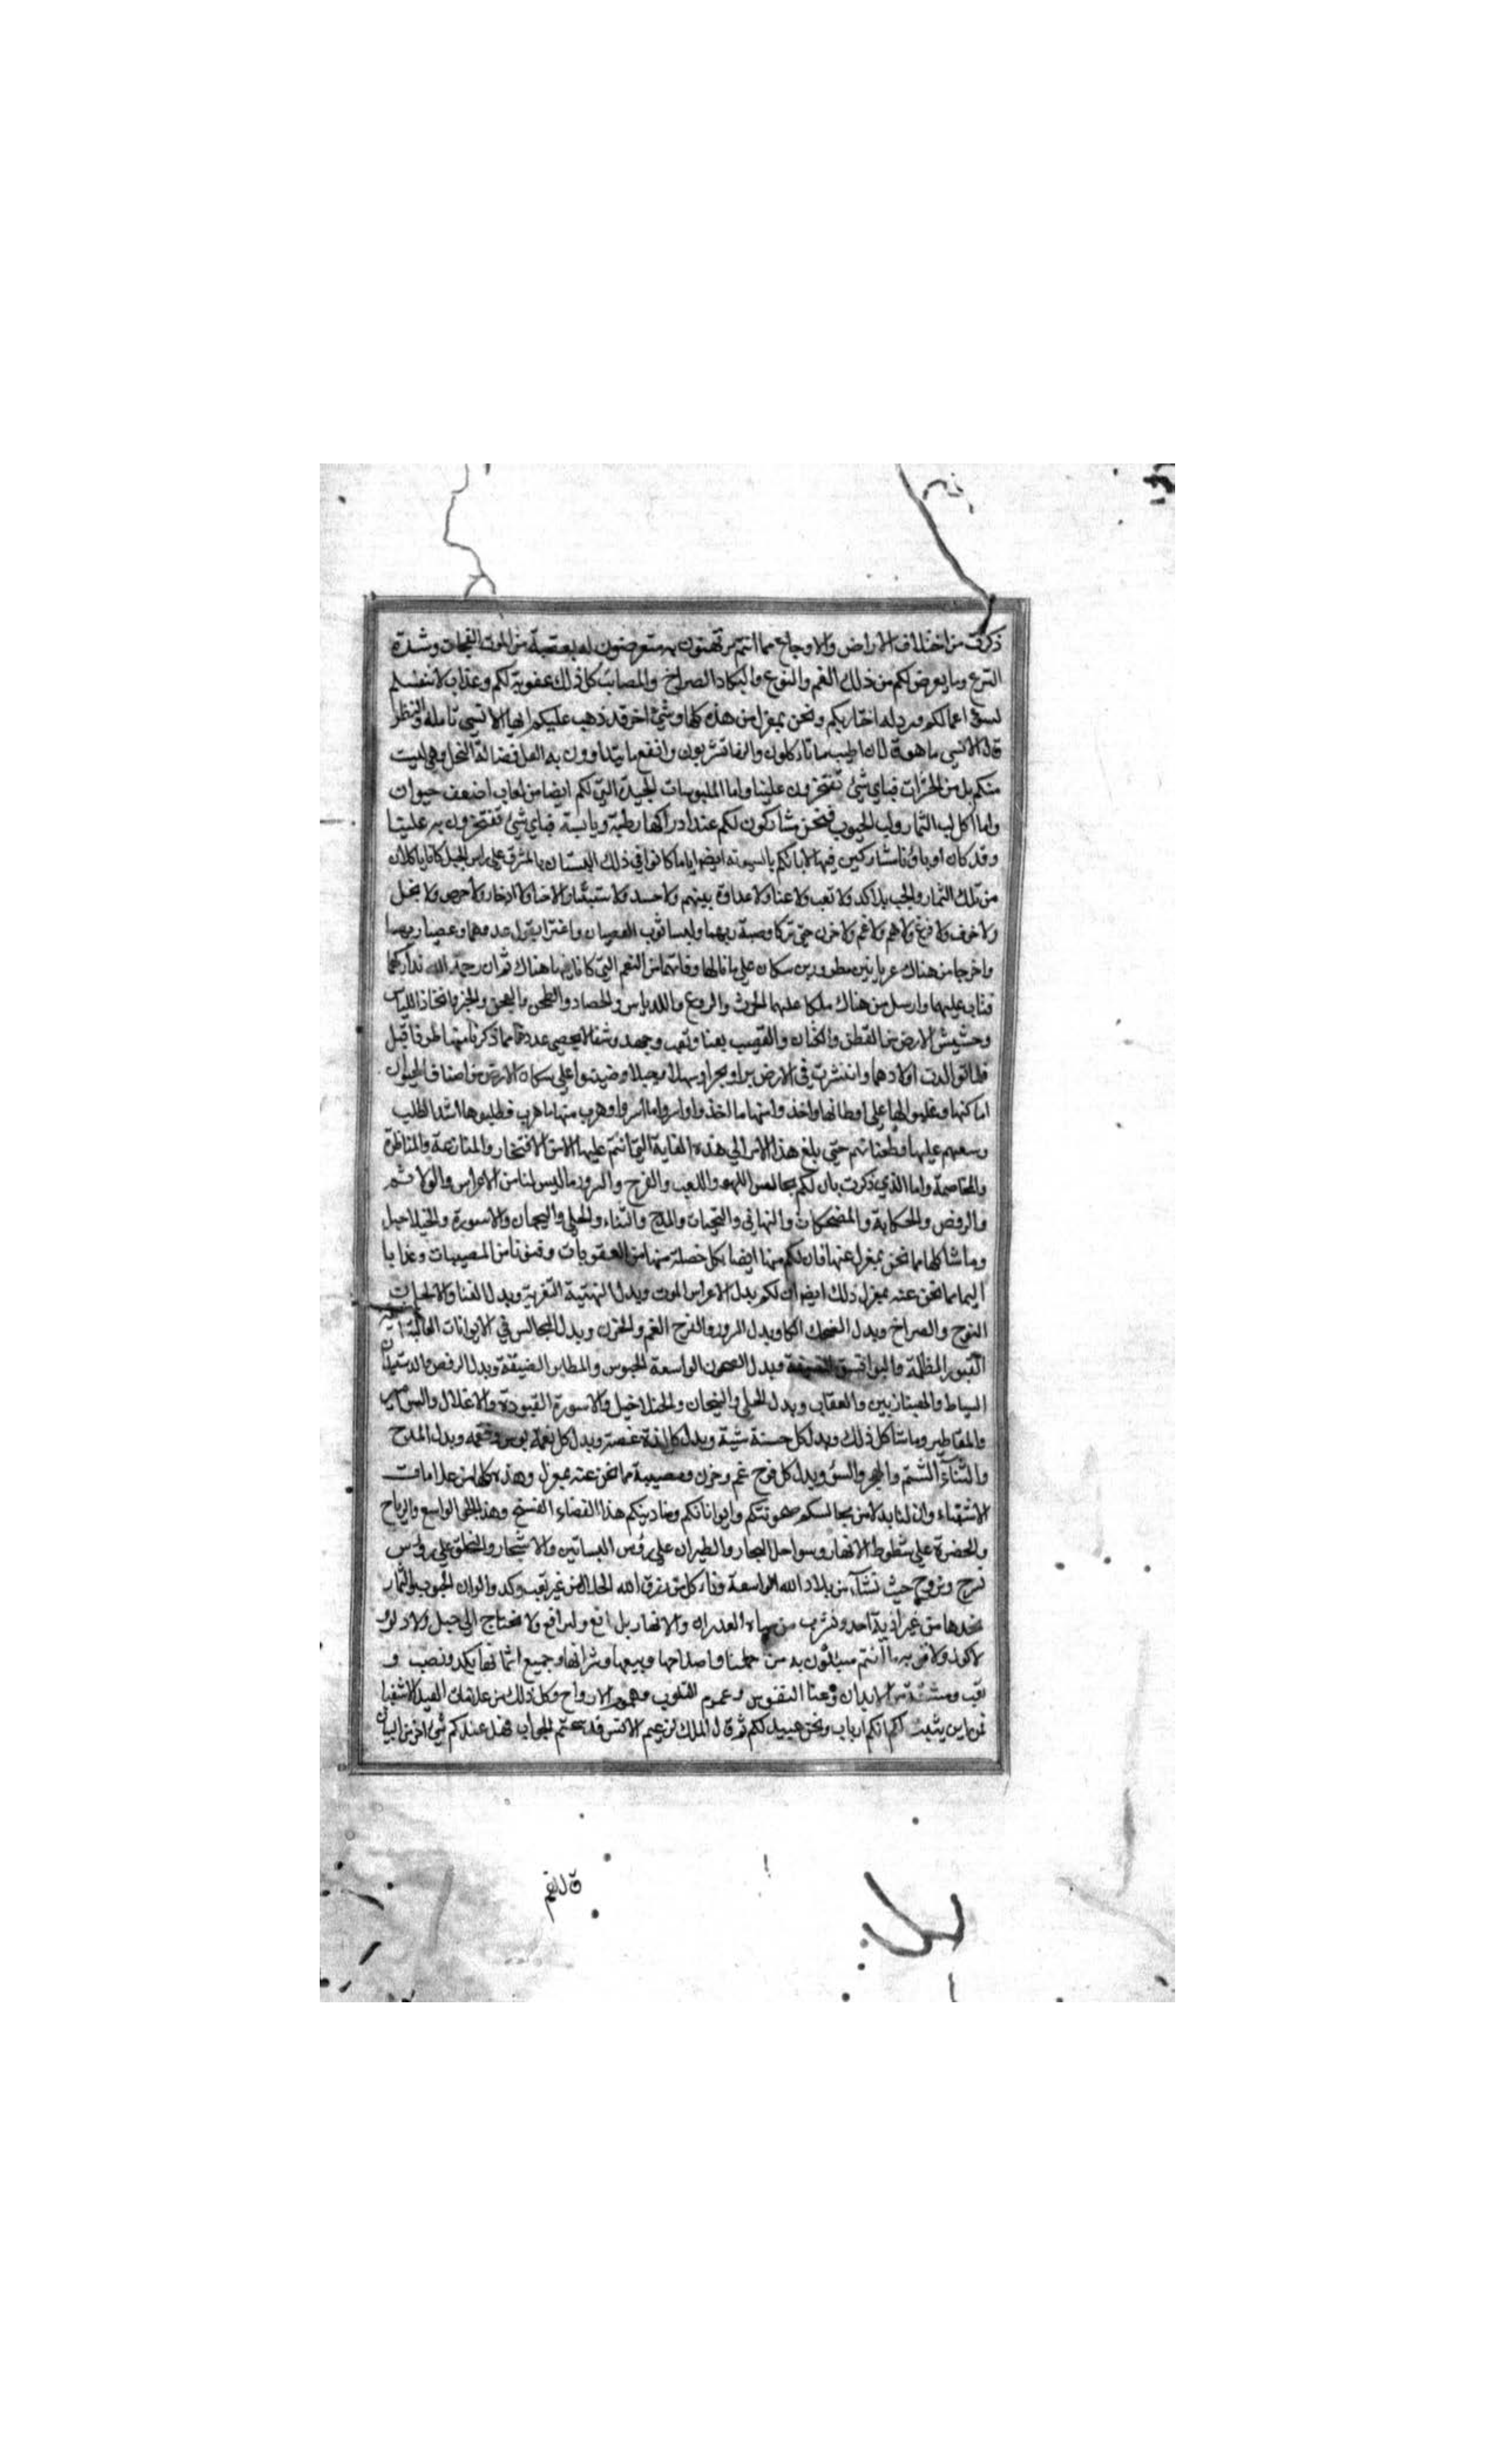 ذكرت من اختلاف الامراض والاوجاع مما انتم مرتهنون به متعرضون له بعقبة من الموت الفجات وشدة
النزع وما يعرض لكم من ذلك الغم والنوع والبكاء والصراخ والمصائب كل ذلك عقوبة لكم وعذاب لانفسكم
لسوء اعمالكم ونحن بمعزل من هذه كلها وشئ اخر قد ذهب عليكم ايها الانسي تامله وانظر
قال الانسي ما هو قال ان اطيب ما تاكلون والذ ما تشربون وانفع ما تتداوون به العسل فضالة النحل وهي ليست
منكم بل من الحشرات فباي شئ تفتخرون علينا واما الملبوسات الجيدة التي لكم ايضا من لعاب اضعف حيوان
واما اكل لب الثمار ولب الحبوب فنحن مشاركون لكم عند ادراكها رطبة ويابسة فباي شئ تفتخرون به علينا
وقد كان اباؤنا مشاركين فيها لابائكم بالسوية ايضا ايام كانوا في ذلك البستان بالمشرق على راس الجبل كانا ياكلان
من تلك الثمار والحب بلا كد ولا تعب ولا عنا ولا عداوة بينهم ولا حسد ولا ادخار ولا حرص ولا بخل
ولا خوف ولا فزع ولا هم ولا غم ولا حزن حتى تركا وصية ربهما واغترا بقول عدوهما وعصيا ربهما
واخرجا من هناك عريانين مطرودين وفاتهما من النعم التي كانا فيها هناك ثم ان رحمة الله تداركهما
فتاب عليهما وارسل من هناك ملكا علمهما الحرث والزرع والدياس والحصاد والطحن والعجن والخبز واتخاذ اللباس
وحشيش الارض من القطن والكتان والقصب بعنا وتعب وجهد وشقا لا يحصى عددها مما ذكرنا منها طرفا قبل
فلما توالدت اولادهما وانتشرت في الارض برا وبحرا وسهلا وجبلا وضيقوا على سكان الارض من اصناف الحيوان
اماكنها وغلبوا لها على اوطانها واخذوا منها ما اخذوا واسروا ما اسروا وهرب منها ما هرب وطلبوها اشد الطلب
وبغيهم عليها وطغيانهم حتى بلغ هذا الامر الى هذه الغاية التي انتم عليها الان من الافتخار والمنازعة والمناظرة
والمخاصمة واما الذي ذكرت بان لكم مجالس اللهو واللعب والفرح والسرور ما ليس لنا من الاعراس والولائم
والرقص والحكاية والمضحكات والتهاني والتحيات والمدح والثناء والحلى والتيجان والاسورة والخلاخيل
وما شاكلها مما نحن بمعزل عنها فان لكم منها ايضا بكل خصلة منها من العقوبات وفنونا من المصيبات وعذابا
اليما مما نحن عنه بمعزل ذلك ايضا ان لكم بدل الاعراس الموت وبدل التهنية التعزية وبدل الغنا والالحان
النوح والصراخ وبدل الضحك البكا وبدل السرور والفرح الغم والحزن وبدل المجالس في الايوانات العالية
القبور المظلمة وبدل الصحون الواسعة الحبوس والمطامير الضيقة وبدل الرقص والدستبند
السياط والعقاب وبدل الحلى والتيجان والخلاخيل والاسورة القيود والاغلال
وما شاكل ذلك وبدل كل حسنة سيئة وبدل كل لذة غصة وبدل كل نعمة بوس ونقمة وبدل المدح
والثناء الشتم والهجو والسوء وبدل كل فرح غم وحزن ومصيبة مما نحن عنه بمعزل وهذه كلها من علامات
الاشقياء وان لنا بدلا من مجالسكم وايواناتكم هذا الفضاء الفسيح وهذا الجو الواسع والرياح
والخضرة على شطوط الانهار وسواحل البحار والطيران على رؤس البساتين والاشجار والتحلق على رؤس
نسرح ونروح حيث نشاء من بلاد الله الواسعة وناكل من رزق الله الحلال من غير تعب وكد والوان الحبوب والثمار
نجدها من غير اذية احد ونشرب من مياه الغدران والانهار بلا مانع ولا دافع ولا نحتاج الى حبل ولا دلو
ولا كوز ولا قربة مما انتم مبتلون به من حملها واصلاحها وبيعها وشرائها وجميع اثمانها بكد ونصب و
تعب ومشقة من الابدان وعنا النفوس وغموم القلوب وهموم الارواح وكل ذلك من علامات العبيد الاشقيا
فمن اين يثبت لكم انكم ارباب ونحن عبيد لكم ثم قال الملك لزعيم الانس قد سمعتم الجواب فهل عندكم شئ اخر من البيان
قال نعم